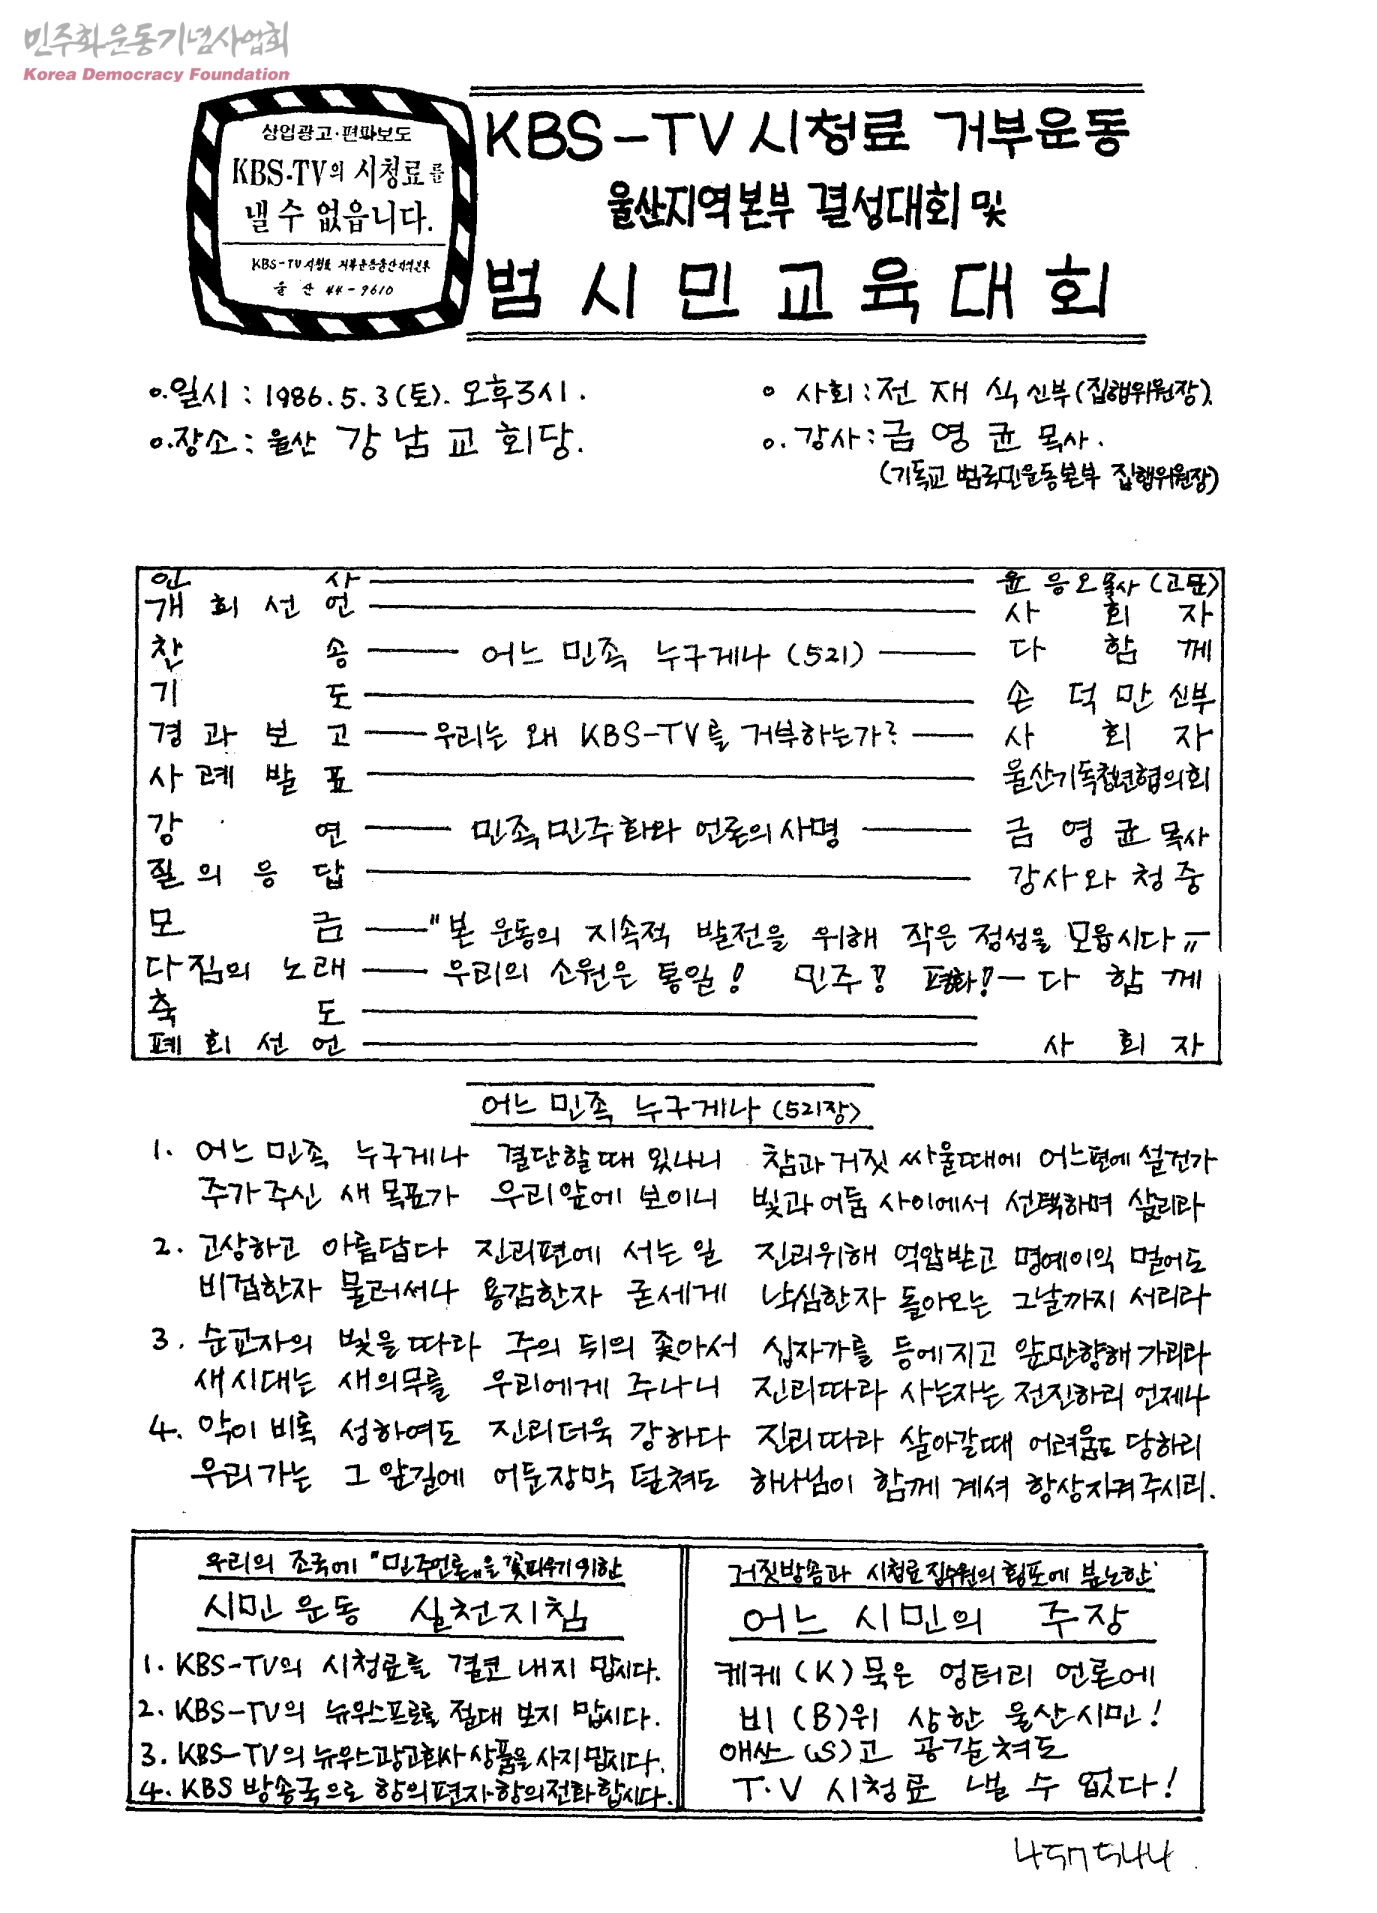 민주화운동기념사업회
Korea Democracy Foundation
상업광고·편파보도
KBS-TV의 시청료를
낼 수 없읍니다.
KBS-TV 시청료 거부운동울산지역본부
울산 44-9610
KBS-TV 시청료 거부운동
울산지역본부 결성대회 및
범시민교육대회
o.일시 : 1986. 5. 3 (토). 오후3시.
o.장소 : 울산 강남교회당.
o 사회 : 전재식 신부 (집행위원장).
o. 강사 : 금영균 목사.
(기독교 범국민운동본부 집행위원장)
인 사 윤응오 목사 (고문)
개회선언 사 회 자
찬 송 어느 민족 누구게나 (521) 다 함 께
기 도 손덕만 신부
경과보고 우리는 왜 KBS-TV를 거부하는가? 사 회 자
사례발표 울산기독청년협의회
강 연 민족민주화와 언론의 사명 금영균 목사
질의응답 강사와 청중
모 금 "본 운동의 지속적 발전을 위해 작은 정성을 모읍시다"
다짐의 노래 우리의 소원은 통일! 민주! 평화! 다 함 께
축 도
폐회선언 사 회 자
어느 민족 누구게나 (521장)
1. 어느 민족 누구게나 결단할 때 있나니 참과 거짓 싸울때에 어느편에 설건가
주가 주신 새 목표가 우리앞에 보이니 빛과 어둠 사이에서 선택하며 살리라
2. 고상하고 아름답다 진리편에 서는 일 진리위해 억압받고 명예이익 멀어도
비겁한자 물러서나 용감한자 굳세게 낙심한자 돌아오는 그날까지 서리라
3. 순교자의 빛을 따라 주의 뒤의 좇아서 십자가를 등에지고 앞만향해 가리라
새시대는 새의무를 우리에게 주나니 진리따라 사는자는 전진하리 언제나
4. 악이 비록 성하여도 진리더욱 강하다 진리따라 살아갈때 어려움도 당하리
우리가는 그 앞길에 어둔장막 덮쳐도 하나님이 함께 계셔 항상지켜주시리.
우리의 조국에 "민주언론"을 꽃피우기 위한
시민운동 실천지침
1. KBS-TV의 시청료를 결코 내지 맙시다.
2. KBS-TV의 뉴우스프로를 절대 보지 맙시다.
3. KBS-TV의 뉴우스광고회사 상품을 사지맙시다.
4. KBS 방송국으로 항의편지·항의전화합시다.
거짓방송과 시청료 징수원의 횡포에 분노한
어느 시민의 주장
케케(K)묵은 엉터리 언론에
비(B)위 상한 울산시민!
애쓰(S)고 공갈쳐도
T.V 시청료 낼 수 없다!